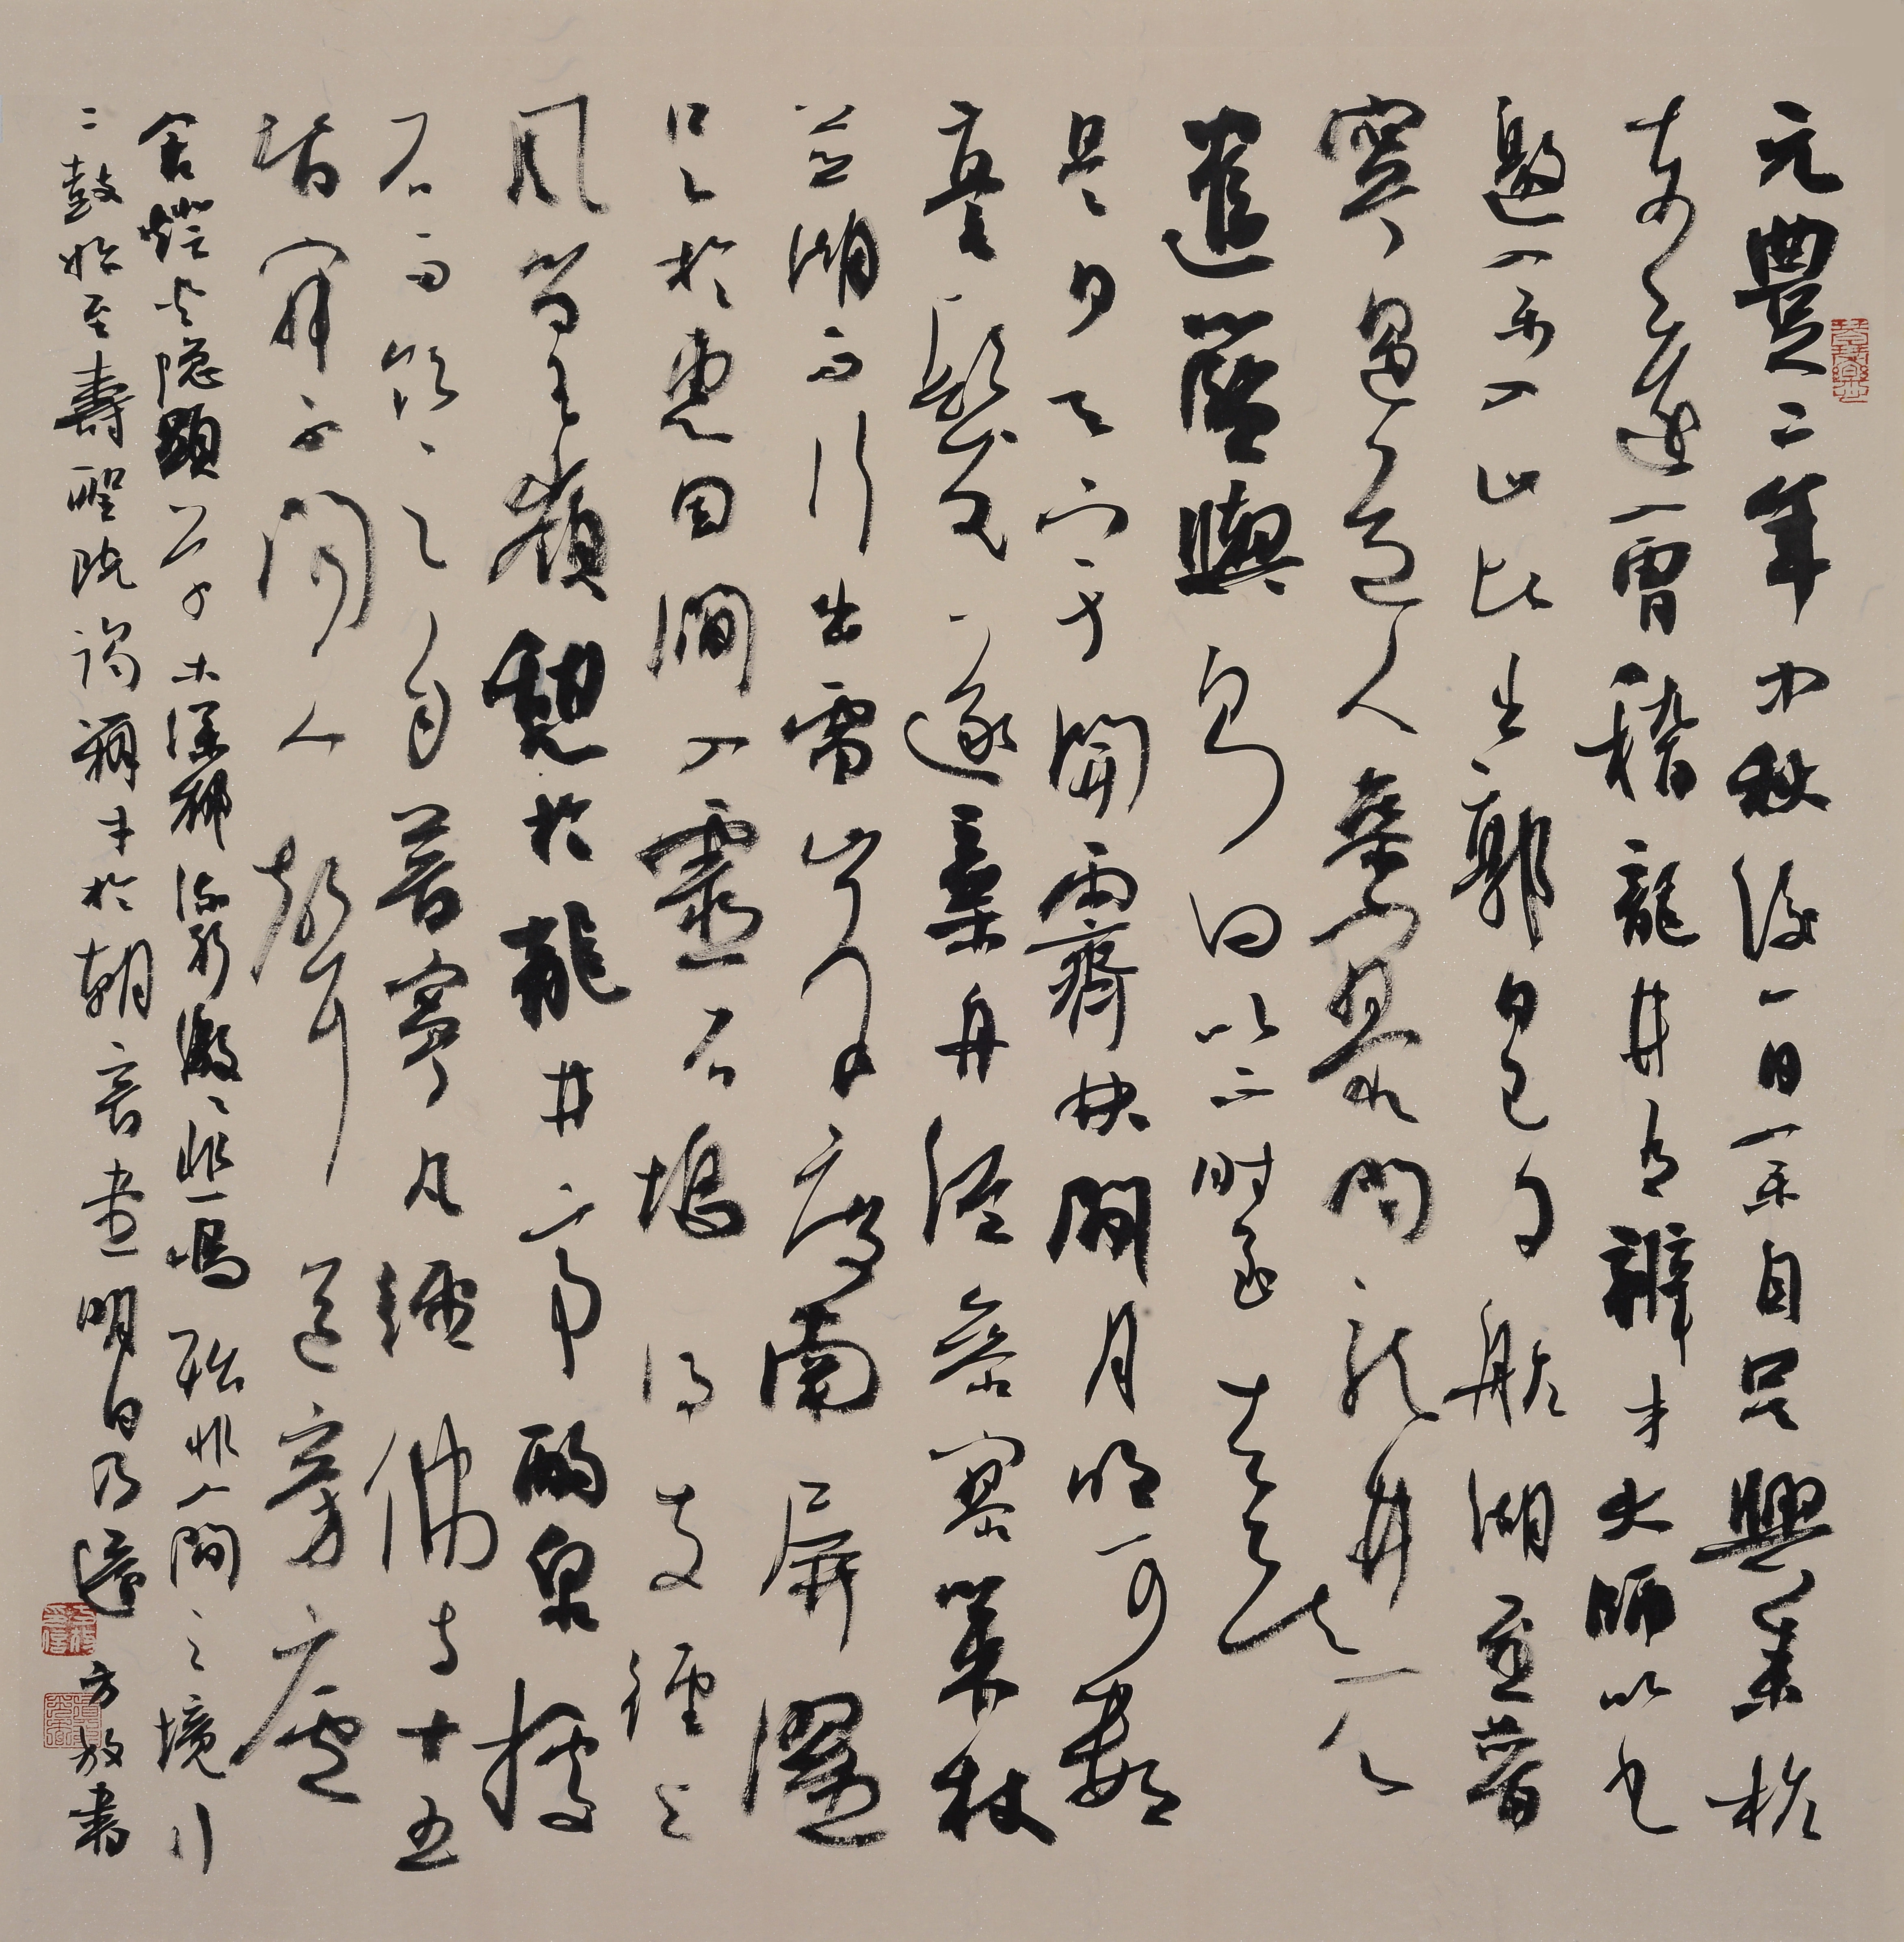 元豐二年中秋後一日余自吳興來杭
東還會稽龍井有辨才大師以書
邀余入山比出郭日已夕航湖至普
寧遇道人參寥問龍井所
遣籃輿則曰以不時至去矣
是夕天宇開霽林間月明可數
毫髮遂棄舟從參寥策杖
並湖而行出雷峰度南屏濯
足於惠因澗入靈石塢得支徑上
風篁嶺憩於龍井亭酌泉據
石而飲之自普寧凡經佛寺十五
皆寂不聞人聲道旁廬
舍燈火隱顯草木深鬱流水激激悲鳴殆非人間之境行
二鼓始至壽聖院謁辨才於朝音堂明日乃還 方放書